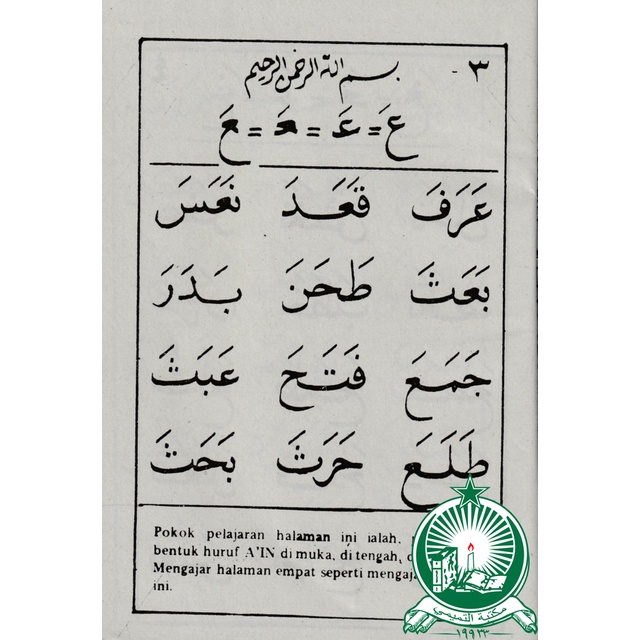 ٣ -
بسم الله الرحمن الرحيم
عَ = عَـ = ـعَـ = ـعَ
عَرَفَ قَعَدَ نَعَسَ
بَعَثَ طَحَنَ بَدَرَ
جَمَعَ فَتَحَ عَبَثَ
طَلَعَ حَرَثَ بَحَثَ
Pokok pelajaran halaman ini ialah,
bentuk huruf A'IN di muka, di tengah,
Mengajar halaman empat seperti
ini.
مكتبة التميمي